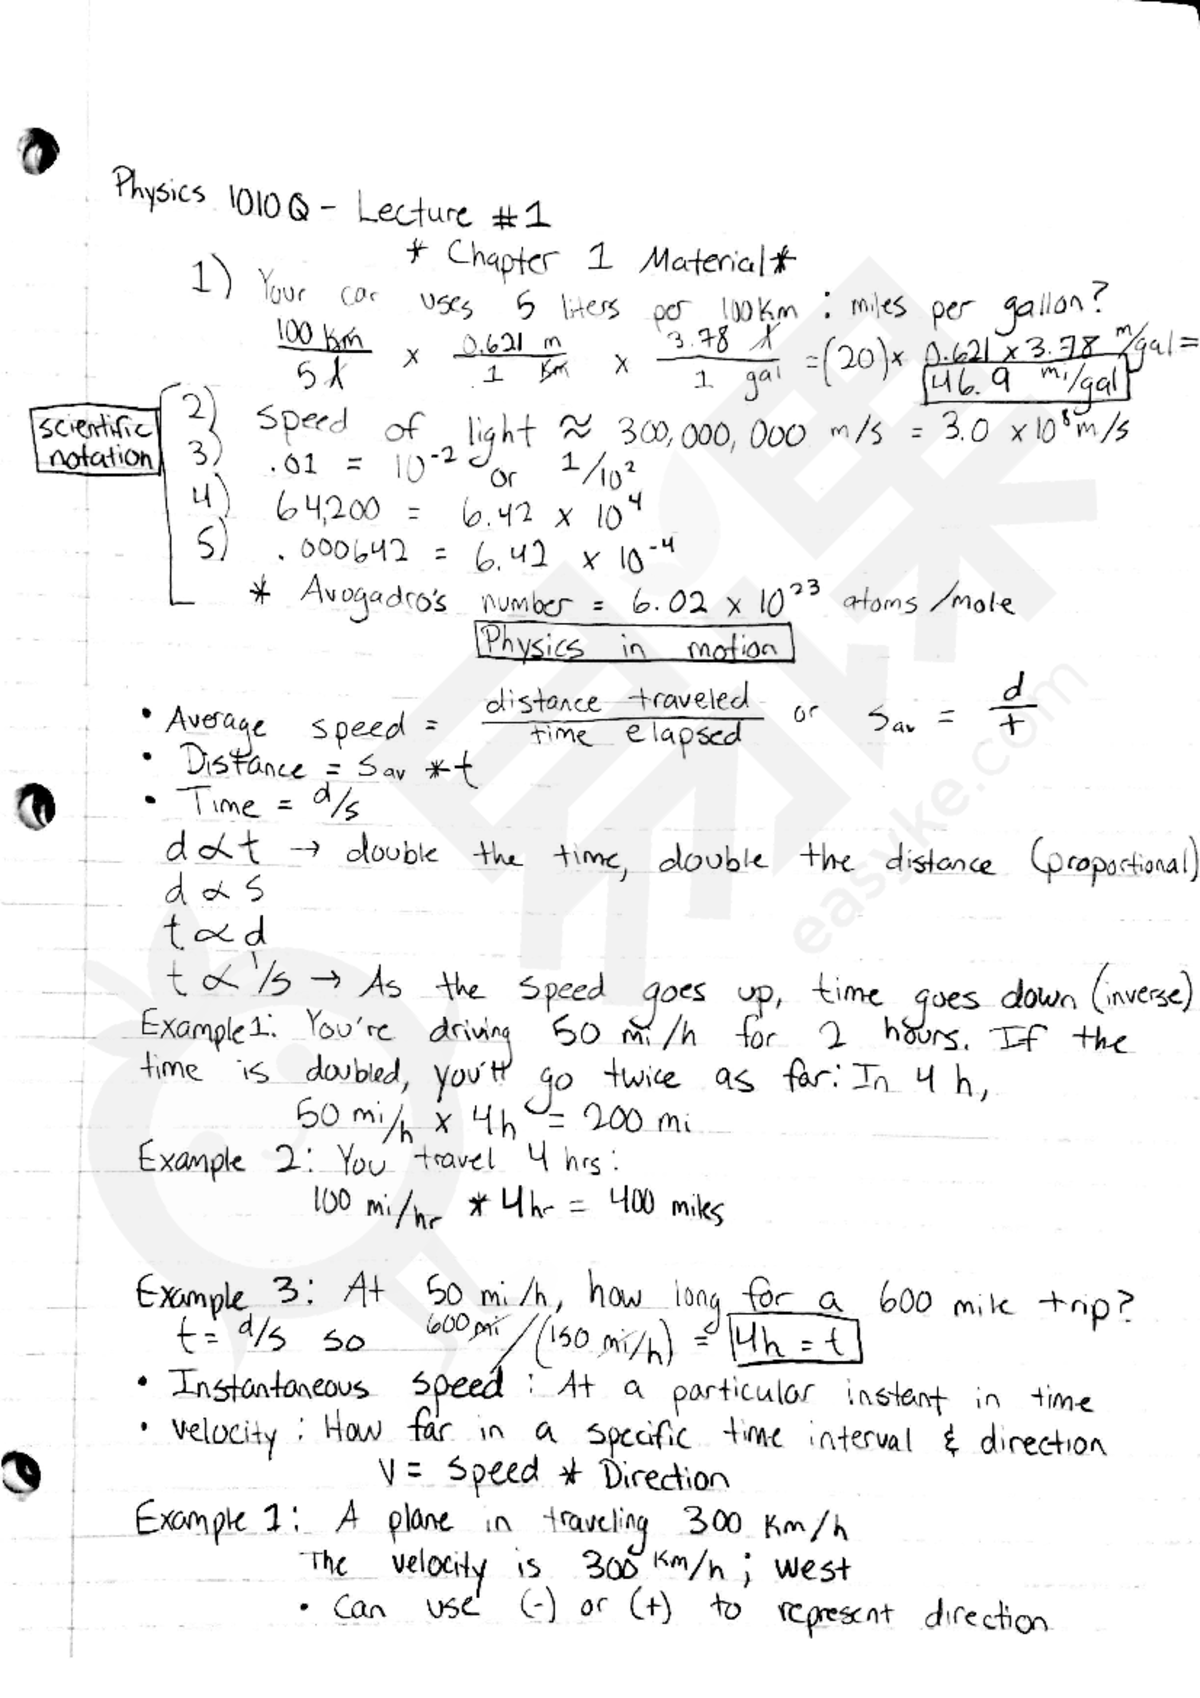 Physics 1010Q - Lecture #1
* Chapter 1 Material *
1) Your car uses 5 liters per 100 Km : miles per gallon?
100 Km / 5 l × 0.621 m / 1 Km × 3.78 l / 1 gal = (20) × 0.621 × 3.78 m/gal =
46.9 mi/gal
scientific notation
2) Speed of light ≈ 300,000,000 m/s = 3.0 × 10⁸ m/s
3) .01 = 10⁻² or 1/10²
4) 64,200 = 6.42 × 10⁴
5) .000642 = 6.42 × 10⁻⁴
* Avogadro's number = 6.02 × 10²³ atoms/mole
Physics in motion
• Average speed = distance traveled / time elapsed or Sav = d / t
• Distance = Sav * t
• Time = d/s
d ∝ t → double the time, double the distance (proportional)
d ∝ s
t ∝ d
t ∝ 1/s → As the speed goes up, time goes down (inverse)
Example 1: You're driving 50 mi/h for 2 hours. If the
time is doubled, you'll go twice as far: In 4 h,
50 mi/h × 4h = 200 mi
Example 2: You travel 4 hrs:
100 mi/hr * 4hr = 400 miles
Example 3: At 50 mi/h, how long for a 600 mile trip?
t = d/s so 600 mi/(150 mi/h) = 4h = t
• Instantaneous speed: At a particular instant in time
• Velocity: How far in a specific time interval & direction
V = Speed * Direction
Example 1: A plane in traveling 300 Km/h
The velocity is 300 Km/h ; west
• Can use (-) or (+) to represent direction
易课
easyke.com